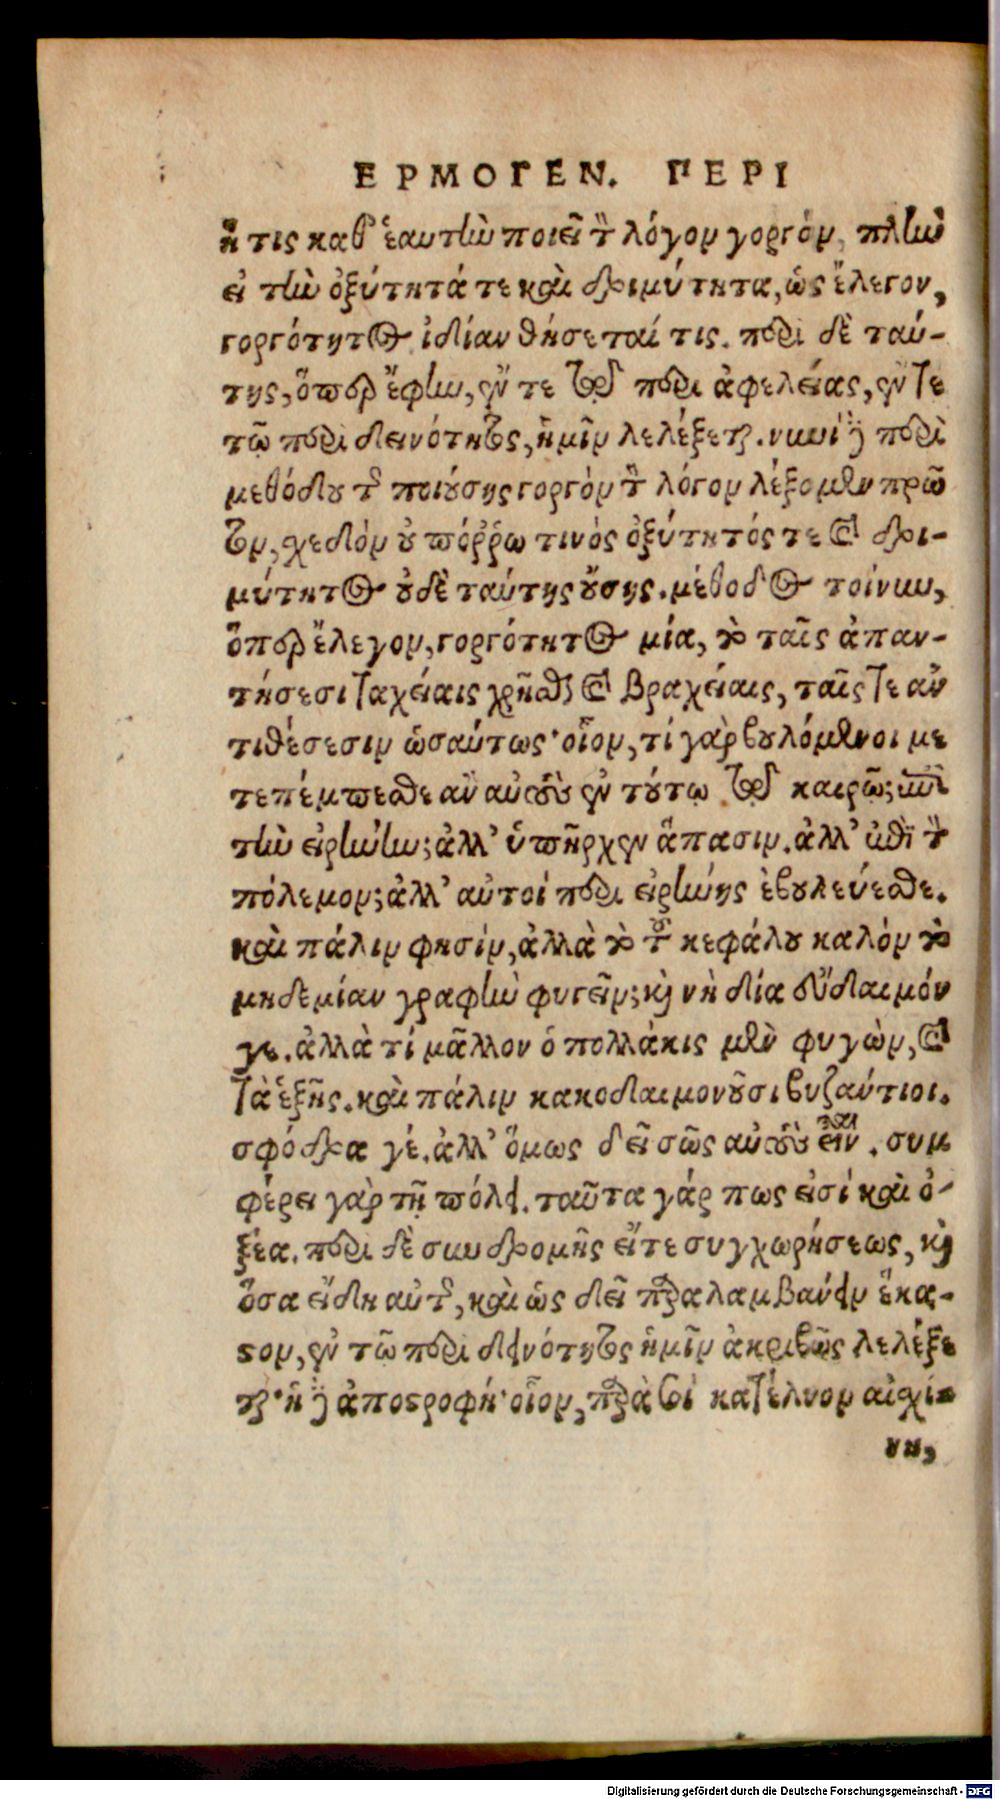 ΕΡΜΟΓΕΝ. ΠΕΡΙ
ἥ τις καθ' ἑαυτὴν ποιεῖ τὸν λόγον γοργόν, πλὴν
εἰ τὴν ὀξύτητά τε καὶ δριμύτητα, ὡς ἔλεγον,
γοργότητος ἰδίαν θήσεταί τις. περὶ δὲ ταύ-
της, ὅπερ ἔφην, ἔν τε τῷ περὶ ἀφελείας, ἔν τε
τῷ περὶ δεινότητος, ἡμῖν λελέξεται. νυνὶ δὲ περὶ
μεθόδου τῆς ποιούσης γοργὸν τὸν λόγον λέξομεν πρῶ
τον, σχεδὸν οὐ πόῤῥω τινὸς ὀξύτητός τε καὶ δρι-
μύτητος οὐδὲ ταύτης οὔσης. μέθοδος τοίνυν,
ὅπερ ἔλεγον, γοργότητος μία, τὸ ταῖς ἀπαν-
τήσεσι ταχείαις χρῆσθαι καὶ βραχείαις, ταῖς τε ἀν
τιθέσεσιν ὡσαύτως· οἷον, τί γὰρ βουλόμενοι με
τεπέμπεσθε ἂν αὐτοὺς ἐν τούτῳ τῷ καιρῷ; ἐπὶ
τὴν εἰρήνην; ἀλλ' ὑπῆρχεν ἅπασιν. ἀλλ' ἐπὶ τὸν
πόλεμον; ἀλλ' αὐτοὶ περὶ εἰρήνης ἐβουλεύεσθε.
καὶ πάλιν φησίν, ἀλλὰ τὸ τοῦ κεφάλου καλὸν τὸ
μηδεμίαν γραφὴν φυγεῖν; καὶ νὴ δία εὔδαιμόν
γε. ἀλλὰ τί μᾶλλον ὁ πολλάκις μὲν φυγών, καὶ
τὰ ἑξῆς. καὶ πάλιν κακοδαιμονοῦσι βυζάντιοι.
σφόδρα γέ. ἀλλ' ὅμως δεῖ σῶς αὐτοὺς εἶναι. συμ
φέρει γὰρ τῇ πόλει. ταῦτα γάρ πως εἰσὶ καὶ ὀ-
ξέα. περὶ δὲ συνδρομῆς εἴτε συγχωρήσεως, καὶ
ὅσα εἴδη αὐτῆς, καὶ ὡς δεῖ παραλαμβάνειν ἕκα-
στον, ἐν τῷ περὶ δεινότητος ἡμῖν ἀκριβῶς λελέξε
ται· ἡ δὲ ἀποστροφή· οἷον, παρὰ σοὶ κατέλυον αἰσχί-
νη,
Digitalisierung gefördert durch die Deutsche Forschungsgemeinschaft - DFG